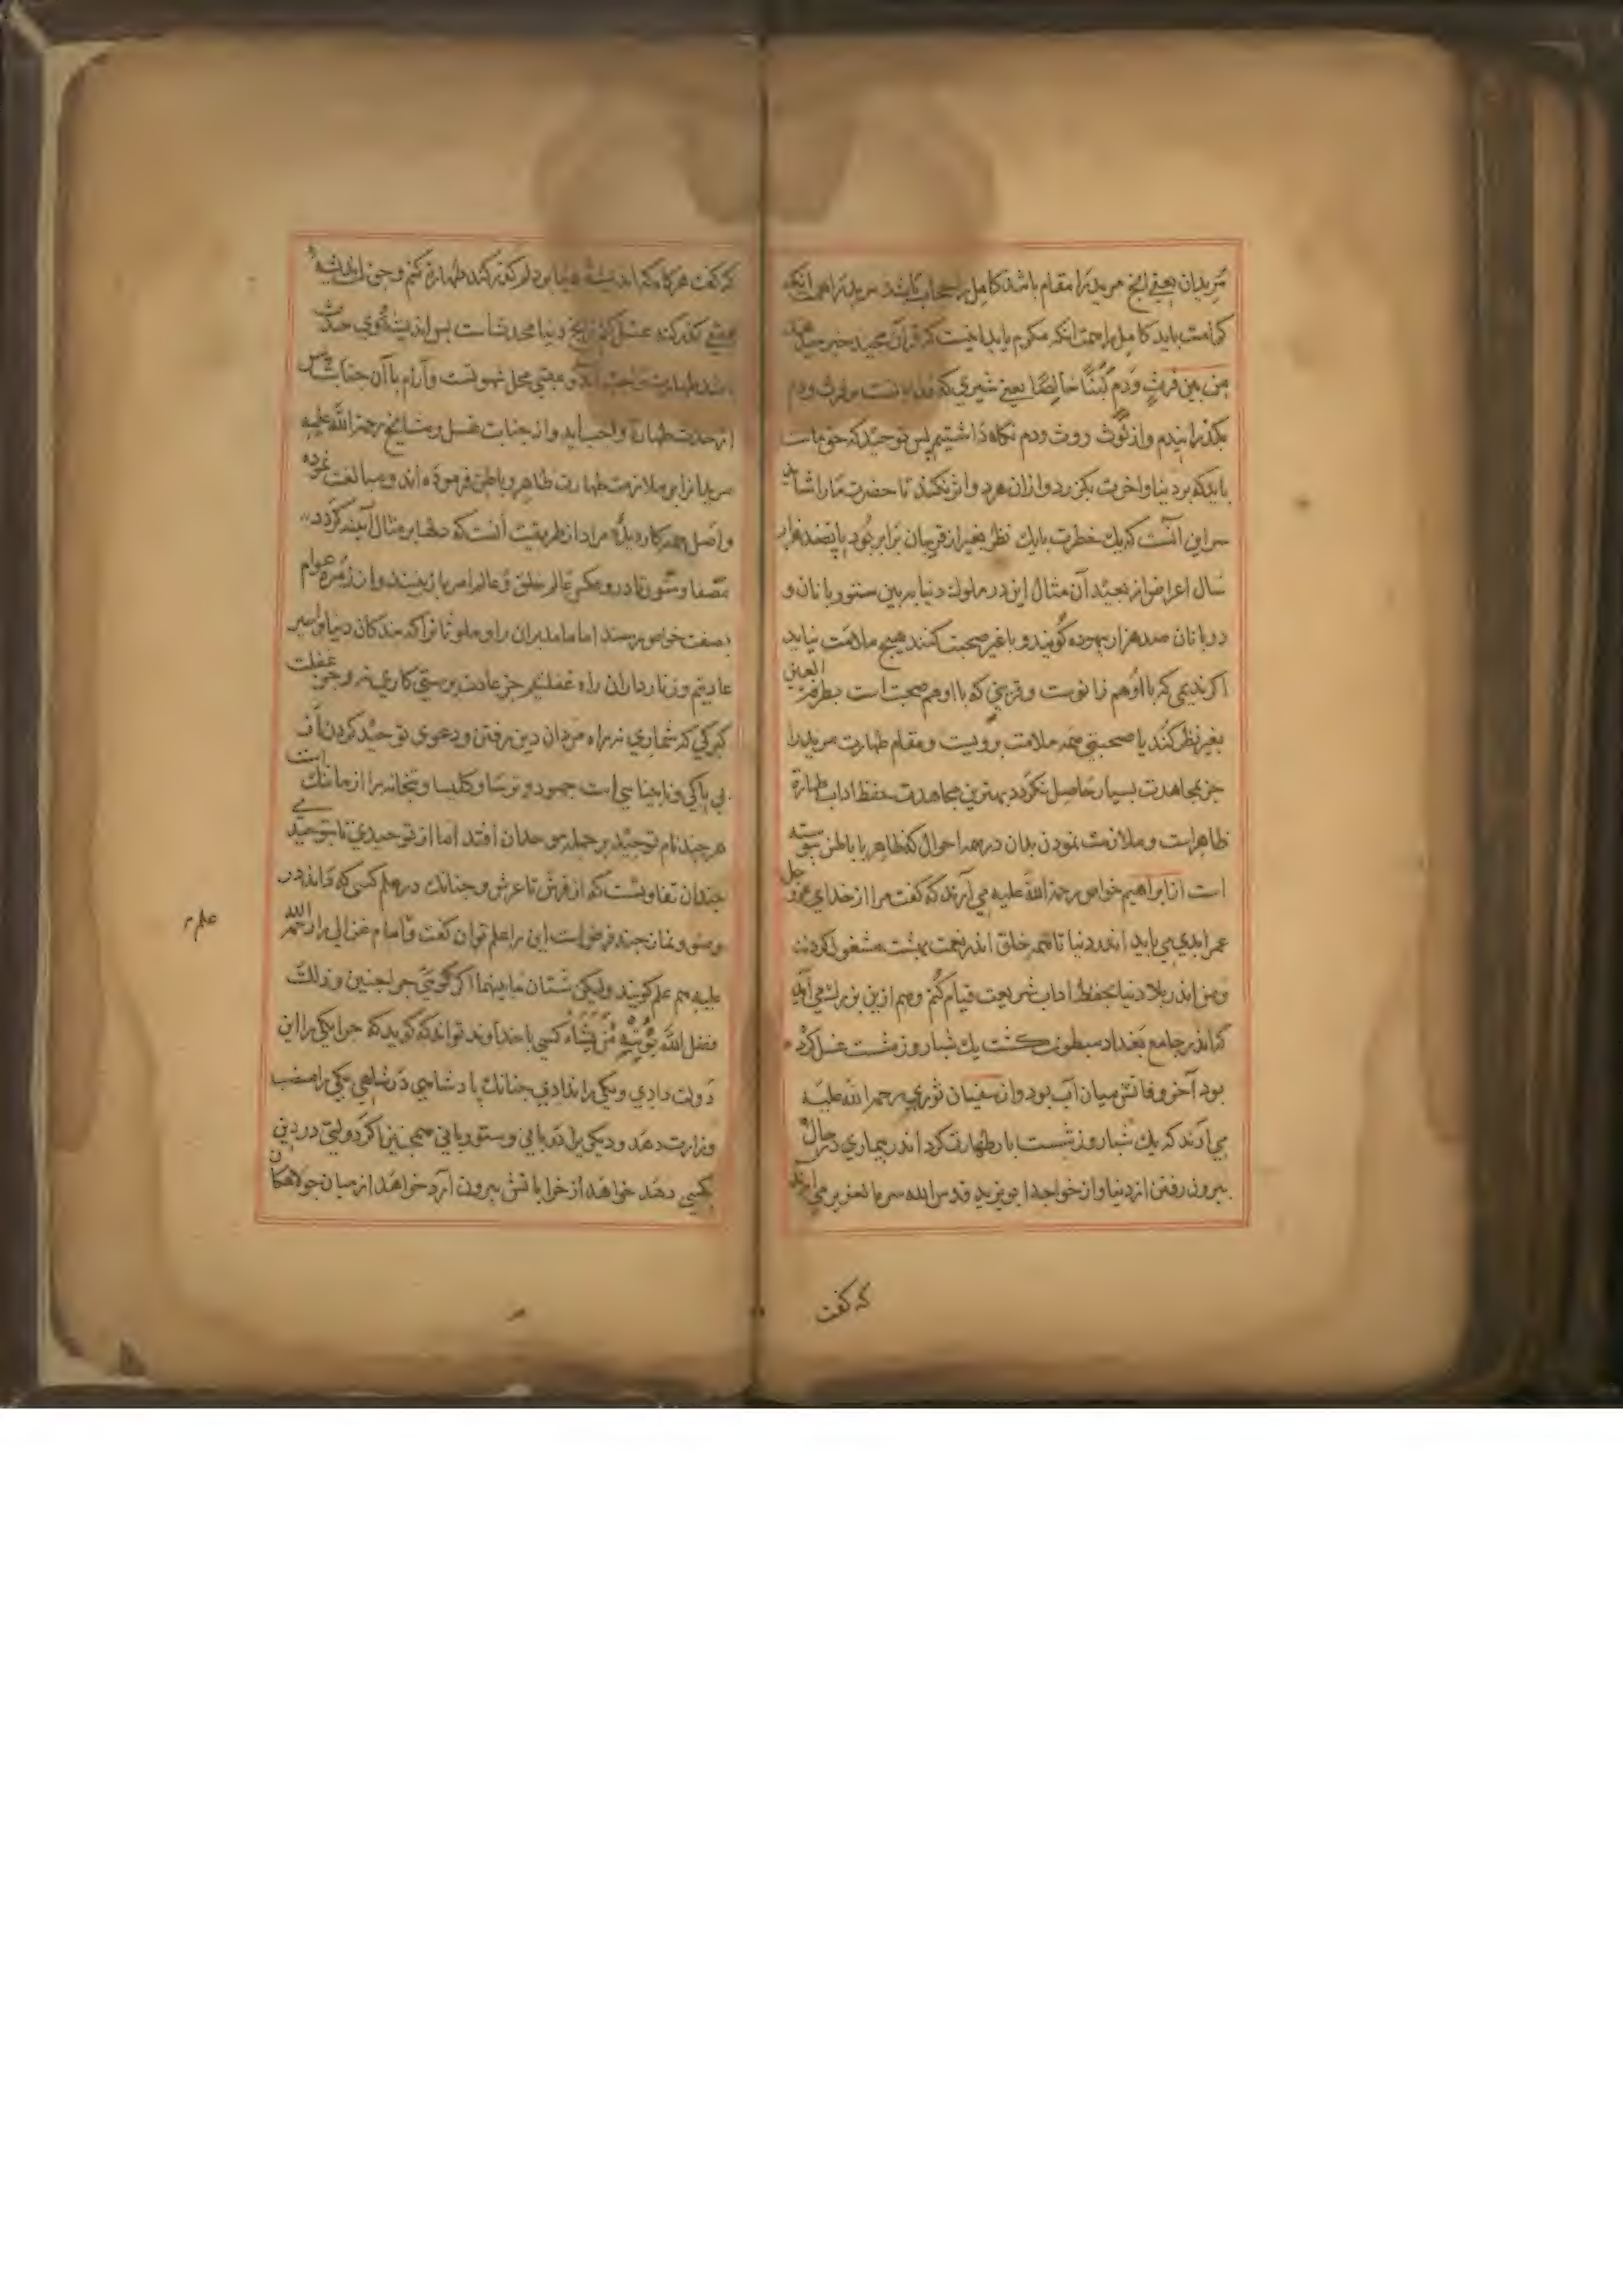 مریدان یعنی انج مریدرا مقام باشد کامل را حجاب باشد مریدرا همت انکه
کرامت یابد کامل را همت انکه مکرم یابد اینست که قرآن مجید خبر میدهد
مِن بَینِ فَرثٍ وَدَمٍ لَبَنًا خَالِصًا یعنی شیری که
بکذرانیدم واز لوث روث ودم نکاه داشتیم پس توحید که حق ماست
باید که بر دنیا واخرت بکذرد وازان هردو اثر نکند تا حضرت مارا شاید
سر این انست که یك خطرت بایك نظر بغیر از قربیان برابر بود باپتصد هزار
سال اعراض از بعید آن مثال این در ملوك دنیا ببین ستوربانان و
دربانان صد هزار بیهوده کویند و باغیر صحبت کنند هیچ ملامت نیاید
اکر ندیمی که بااو هم زانوست وقرینی که بااو هم صحبت است بطرفة العین
بغیر نظر کند یا صحبتی همه ملامت برویست ومقام طهارت مریدرا
جز بمجاهدت بسیار حاصل نکردد بهترین مجاهدت حفظ اداب طهارة
ظاهراست وملازمت نمودن بدان در همه احوال که ظاهر با باطن پیوسته
است از ابراهیم خواص رحمة الله علیه می آرند که کفت مرا از خدای عز و جل
عمر ابدی می باید اندر دنیا تا همه خلق اندر نعمت بهشت مشغول کردند
ومن اندر بلا دنیا بحفظ اداب شریعت قیام کنم وهم ازین بزرك می آرند
که اندر جامع بغداد مبطون کشت یك شبار وز شصت غسل کرده
بود آخر وفاتش میان آب بود واز سفیان ثوری رحمة الله علیه
می آرند که یك شبار وز شصت بار طهارت کرد اندر بیماری در حال
بیرون رفتن از دنیا واز خواجه ابو یزید قدس الله سره العزیز می آرند
که کفت
که کفت هرکاه که اندیشه دنیا بر دلم کذر کند طهارة کنم وچون اندیشه
عقبی کذر کند غسل کنم زانج دنیا محدثست پس اندیشه وی حدث
باشد طهارت واجب آید وعقبی محل شهوتست وآرام باآن جنابت پس
از حدث طهارة واجب آید واز جنابت غسل ومشایخ رحمة الله علیهم
مریدانرا بر ملازمت طهارت ظاهر وباطن فرموده اند ومبالغت نموده
واصل همه کار دیده مراد از طریقت آنست که دلها بر مثال آیینه کردد
مصفا وستون نادر وعکس عالم خلق وعالم امر باز بینند واز زمرة عوام
بصفت خواص برسند اما ما مدبران را وملوثانرا که بندکان دنیا واسیر
عادتیم وزنارداران راه غفلتیم جز عادت پرستی کاری نه وجز غفلت
کبرکی که شماری نه براه مردان دین رفتن ودعوی توحید کردن از
بی باکی وناجیناسی است جهود وترسا وکلیسا وبتخانه را از ما ننك است
هر چند نام توحید بر جمله موحدان افتد اما از توحیدی تا بتوحیدی
چندان تفاوتست که از فرش تا عرش وچنانك در علم کسی که داند در
وضو ونماز چند فرض است این را علم توان کفت وامام غزالی را رحمة الله
علیه هم علم کویند ولیکن شتان ما بینهما اکر کویی چرا چنین وذلك
فضل الله یؤتیه من یشاء کسی باخداوند تواند که کوید که چرا یکی را این
دولت دادی ویکی را ندادی چنانك پادشاهی در شاهی یکی را منصب
وزارت دهد ودیکی را دربانی وستوربانی همچنین اکر دولتی در دین
کسی دهد خواهد از خراباتش بیرون آرد خواهد از میان جولاهکان
علم ر